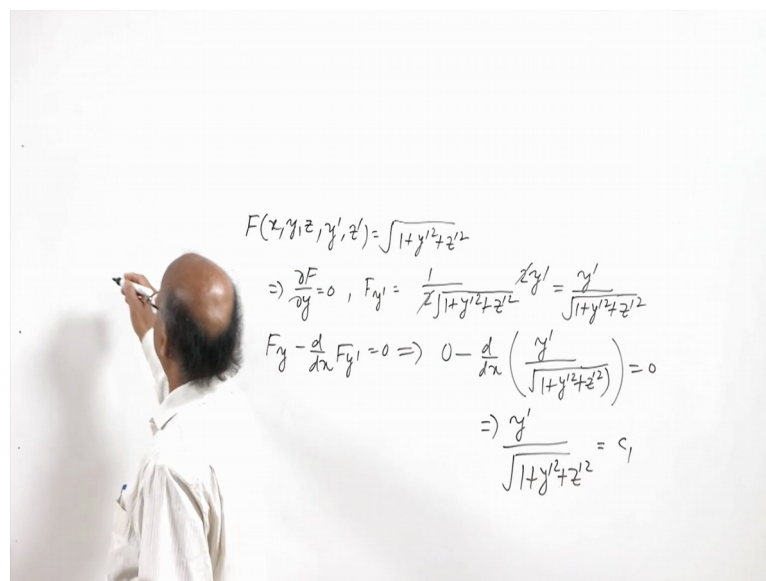 F(x,y,z,y',z')=√(1+y'²+z'²)
=> ∂F/∂y=0, F_y' = 1/(2√(1+y'²+z'²)) 2y' = y'/√(1+y'²+z'²)
F_y - d/dx F_y' =0 => 0 - d/dx (y'/√(1+y'²+z'²)) = 0
=> y'/√(1+y'²+z'²) = c₁